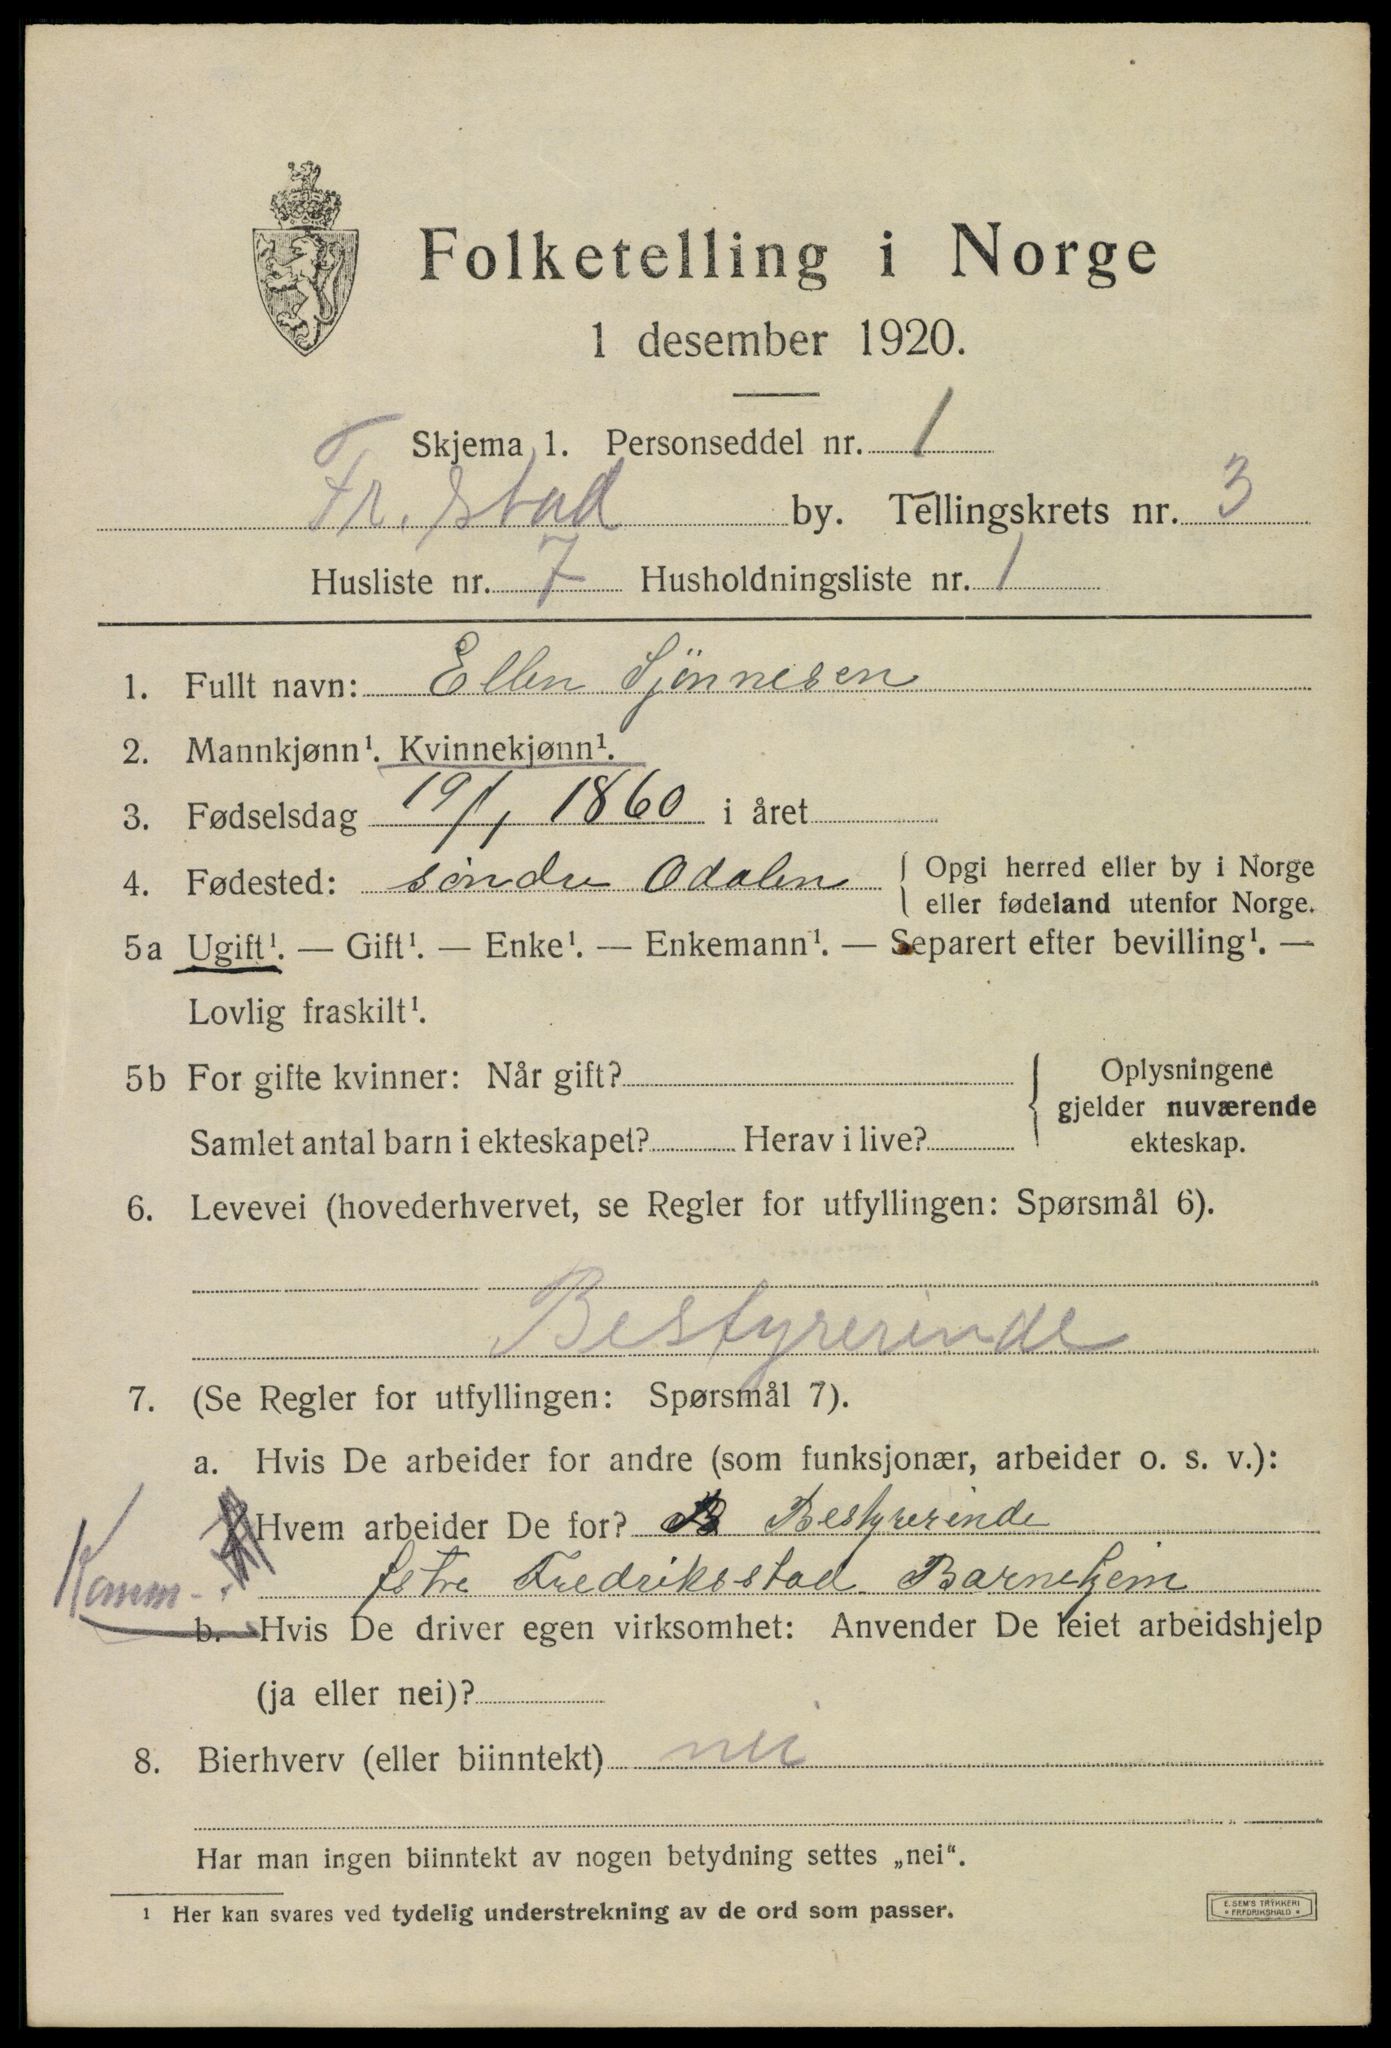 Folketelling i Norge
1 desember 1920.
Skjema 1. Personseddel nr. 1
Fr.stad by. Tellingskrets nr. 3
Husliste nr. 7 Husholdningsliste nr. 1
1. Fullt navn: Ellen Sjönnesen
2. Mannkjønn¹. Kvinnekjønn¹.
3. Fødselsdag 19/1, 1860 i året
4. Fødested: söndre Odalen { Opgi herred eller by i Norge
eller fødeland utenfor Norge.
5a Ugift¹. — Gift¹. — Enke¹. — Enkemann¹. — Separert efter bevilling¹. —
Lovlig fraskilt¹.
5b For gifte kvinner: Når gift? { Oplysningene
gjelder nuværende
Samlet antal barn i ekteskapet? Herav i live? ekteskap.
6. Levevei (hovederhvervet, se Regler for utfyllingen: Spørsmål 6).
Bestyrerinde
7. (Se Regler for utfyllingen: Spørsmål 7).
a. Hvis De arbeider for andre (som funksjonær, arbeider o. s. v.):
Hvem arbeider De for? B Bestyrerinde
Komm. östre Fredriksstad Barnehjem
b. Hvis De driver egen virksomhet: Anvender De leiet arbeidshjelp
(ja eller nei)?
8. Bierhverv (eller biinntekt) nei
Har man ingen biinntekt av nogen betydning settes „nei“.
¹ Her kan svares ved tydelig understrekning av de ord som passer.
E. SEM'S TRYKKERI
* FREDRIKSHALD *